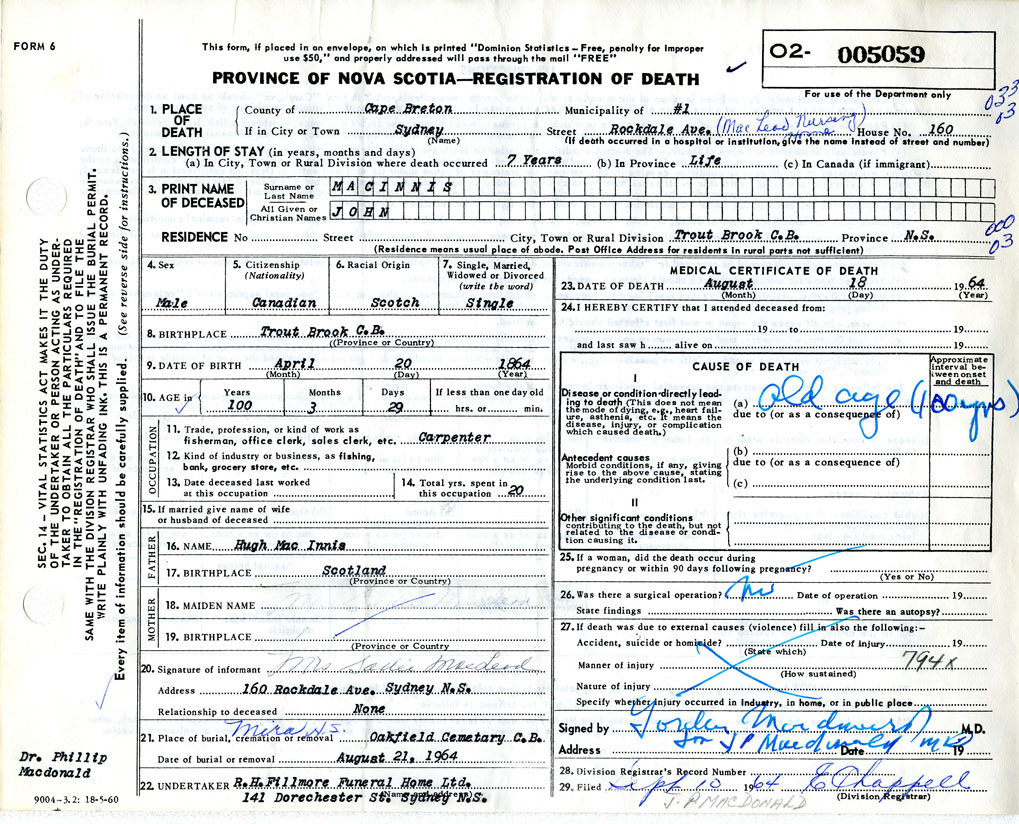 FORM 6
This form, if placed in an envelope, on which is printed "Dominion Statistics – Free, penalty for improper
use $50," and properly addressed will pass through the mail "FREE"
PROVINCE OF NOVA SCOTIA—REGISTRATION OF DEATH
02- 005059
For use of the Department only
033
03
1. PLACE OF DEATH
County of Cape Breton Municipality of #1
If in City or Town Sydney Street Rockdale Ave. (Mac Lead Nursing Home) House No. 160
(Name) (If death occurred in a hospital or institution, give the name instead of street and number)
2. LENGTH OF STAY (in years, months and days)
(a) In City, Town or Rural Division where death occurred 7 Years (b) In Province Life (c) In Canada (if immigrant)
3. PRINT NAME OF DECEASED
Surname or Last Name MACINNIS
All Given or Christian Names JOHN
000
03
RESIDENCE No Street City, Town or Rural Division Trout Brook C.B. Province N.S.
(Residence means usual place of abode. Post Office Address for residents in rural parts not sufficient)
4. Sex
Male
5. Citizenship (Nationality)
Canadian
6. Racial Origin
Scotch
7. Single, Married, Widowed or Divorced (write the word)
Single
8. BIRTHPLACE Trout Brook C.B.
(Province or Country)
9. DATE OF BIRTH April 20 1864
(Month) (Day) (Year)
10. AGE in Years Months Days If less than one day old
100 3 29 hrs. or min.
OCCUPATION
11. Trade, profession, or kind of work as
fisherman, office clerk, sales clerk, etc. Carpenter
12. Kind of industry or business, as fishing,
bank, grocery store, etc.
13. Date deceased last worked
at this occupation
14. Total yrs. spent in
this occupation 20
15. If married give name of wife
or husband of deceased
FATHER
16. NAME Hugh Mac Innis
17. BIRTHPLACE Scotland
(Province or Country)
MOTHER
18. MAIDEN NAME
19. BIRTHPLACE
(Province or Country)
20. Signature of informant Mrs Sadie MacLeod
Address 160 Rockdale Ave. Sydney N.S.
Relationship to deceased None
Mira N.S.
21. Place of burial, cremation or removal Oakfield Cemetary C.B.
Date of burial or removal August 21, 1964
22. UNDERTAKER R.H.Fillmore Funeral Home Ltd.
(Name and address)
141 Dorechester St. Sydney N.S.
MEDICAL CERTIFICATE OF DEATH
23. DATE OF DEATH August 18 1964
(Month) (Day) (Year)
24. I HEREBY CERTIFY that I attended deceased from:
19 to 19
and last saw h alive on 19
CAUSE OF DEATH
Approximate interval between onset and death
I
Disease or condition directly leading to death (This does not mean the mode of dying, e.g., heart failure, asthenia, etc. It means the disease, injury, or complication which caused death.)
(a) old age (100 yrs)
due to (or as a consequence of)
Antecedent causes
Morbid conditions, if any, giving rise to the above cause, stating the underlying condition last.
(b)
due to (or as a consequence of)
(c)
II
Other significant conditions
contributing to the death, but not related to the disease or condition causing it.
25. If a woman, did the death occur during
pregnancy or within 90 days following pregnancy?
(Yes or No)
26. Was there a surgical operation? No Date of operation 19
State findings Was there an autopsy?
27. If death was due to external causes (violence) fill in also the following:-
Accident, suicide or homicide? Date of injury 19
(State which)
Manner of injury 794x
(How sustained)
Nature of injury
Specify whether injury occurred in industry, in home, or in public place.
Signed by M.D.
for J P Macdonald MD
Address Date 19
28. Division Registrar's Record Number
29. Filed Sept 10 1964 E Chappell
(Division Registrar)
J. P. MACDONALD
SEC. 14 – VITAL STATISTICS ACT MAKES IT THE DUTY
OF THE UNDERTAKER OR PERSON ACTING AS UNDER-
TAKER TO OBTAIN ALL THE PARTICULARS REQUIRED
IN THE "REGISTRATION OF DEATH" AND TO FILE THE
SAME WITH THE DIVISION REGISTRAR WHO SHALL ISSUE THE BURIAL PERMIT.
WRITE PLAINLY WITH UNFADING INK. THIS IS A PERMANENT RECORD.
Every item of information should be carefully supplied. (See reverse side for instructions.)
Dr. Phillip
Macdonald
9004-3.2: 18-5-60